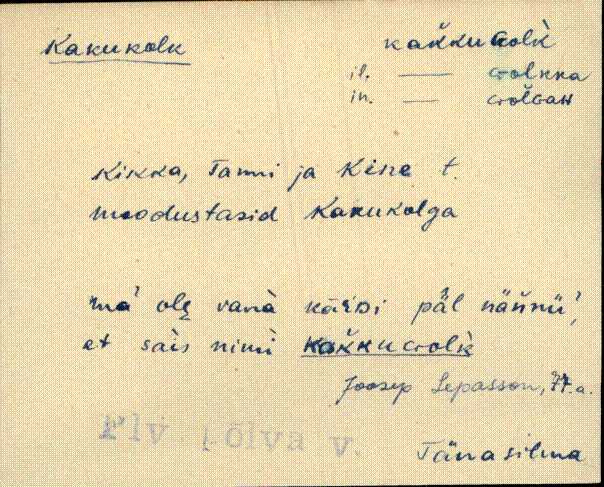 Kakukolk kak̆kuGolk̀
il. — Golkka
in. — GŏlGaH
Kikka, Tammi ja Kine t.
moodustasid Kakukolga
"ma' ole vanà kăȓDi päl näňnü',
et sàis nimì kak̆kuGolk̀
Joosep Lepasson, 77.a.
Plv Põlva v.
Tänasilma